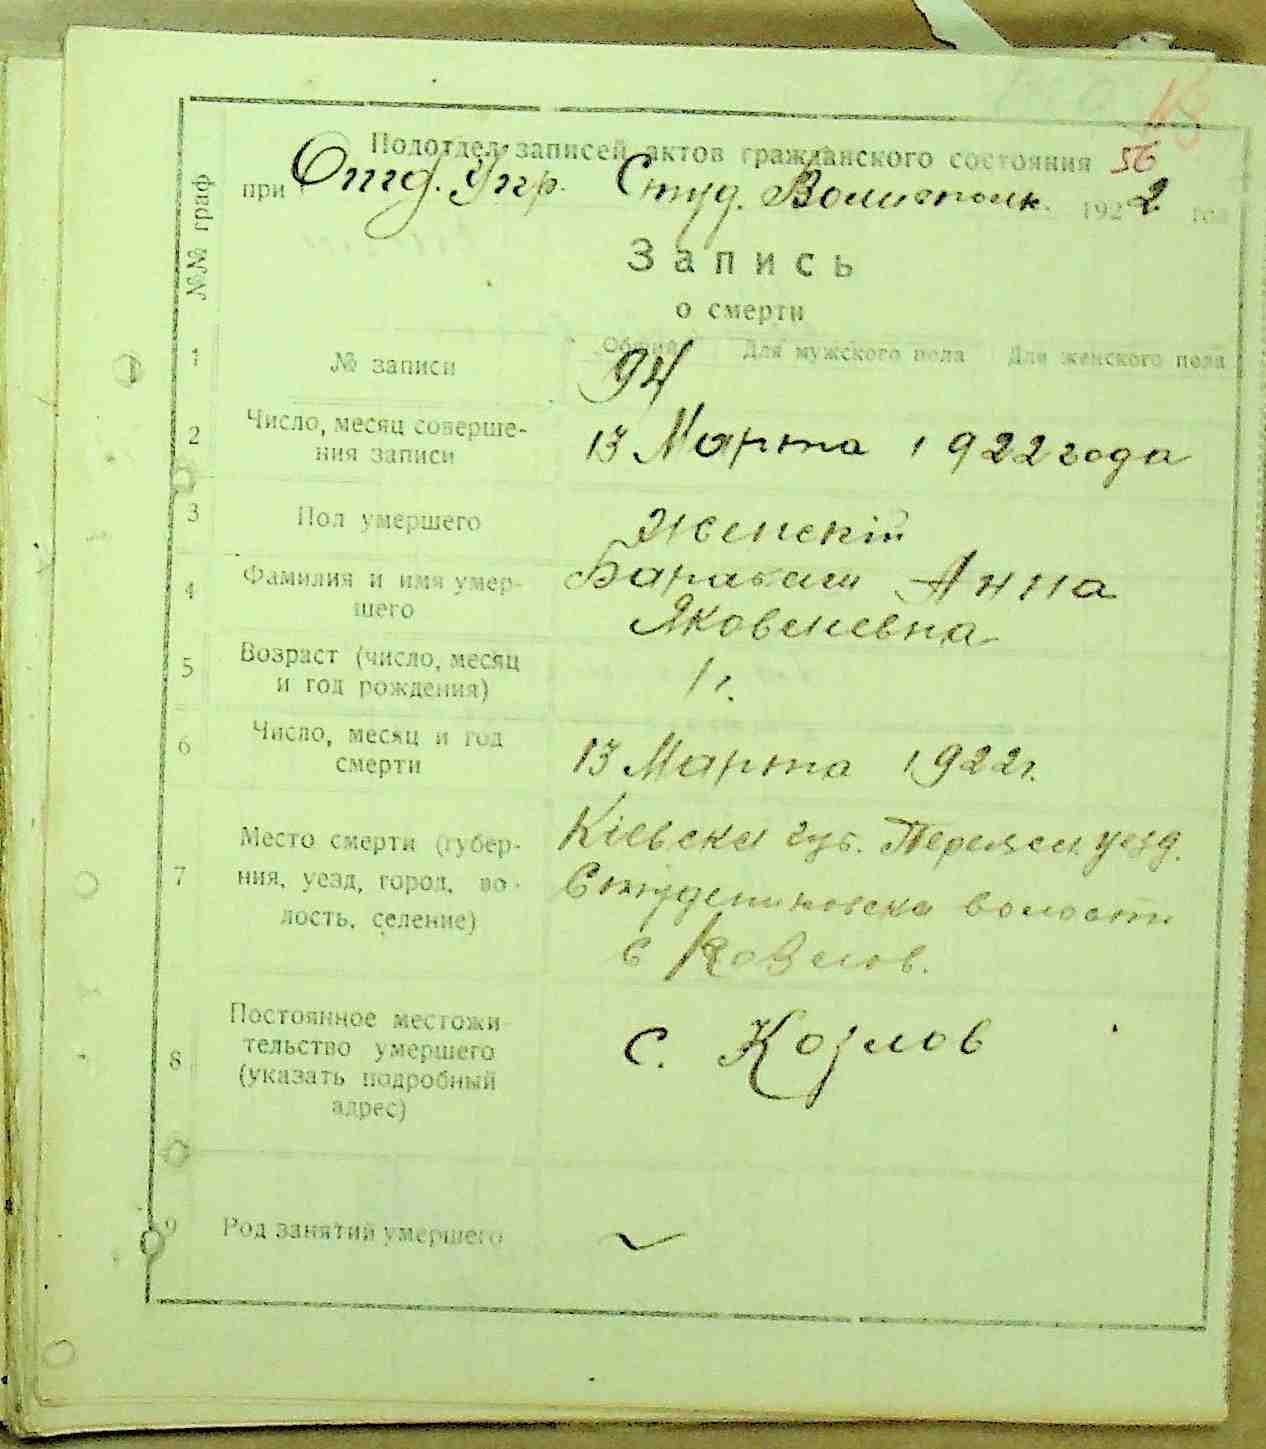 Подотдел записей актов гражданского состояния 56
при Отд. Упр. Студ. Волисполк. 1922 год
№№ граф
Запись
о смерти
Общий Для мужского пола Для женского пола
1 № записи 94
2 Число, месяц соверше-
ния записи
13 Марта 1922 года
3 Пол умершего Женскій
4 Фамилия и имя умер-
шего
Барабаш Анна
Яковлевна
5 Возраст (число, месяц
и год рождения)
1 г.
6 Число, месяц и год
смерти
13 Марта 1922 г.
7 Место смерти (губер-
ния, уезд, город, во-
лость, селение)
Кіевска губ. Переясл. уезд.
Студениковска волости
с Козлов.
8 Постоянное местожи-
тельство умершего
(указать подробный
адрес)
с. Козлов
9 Род занятий умершего